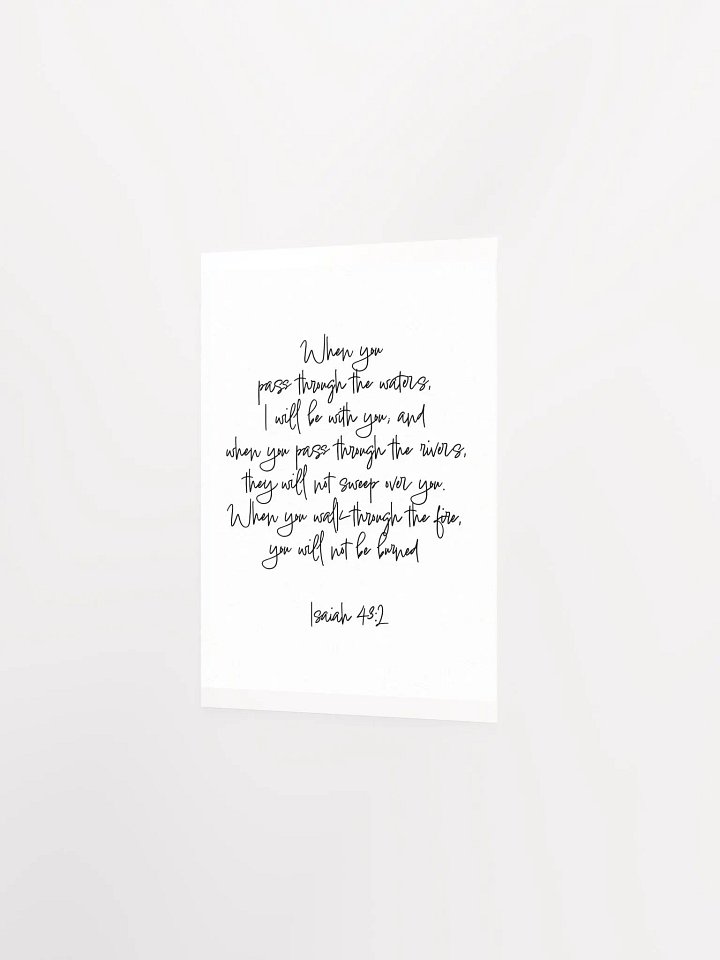 When you
pass through the waters,
I will be with you, and
when you pass through the rivers,
they will not sweep over you.
When you walk through the fire,
you will not be burned
Isaiah 43:2